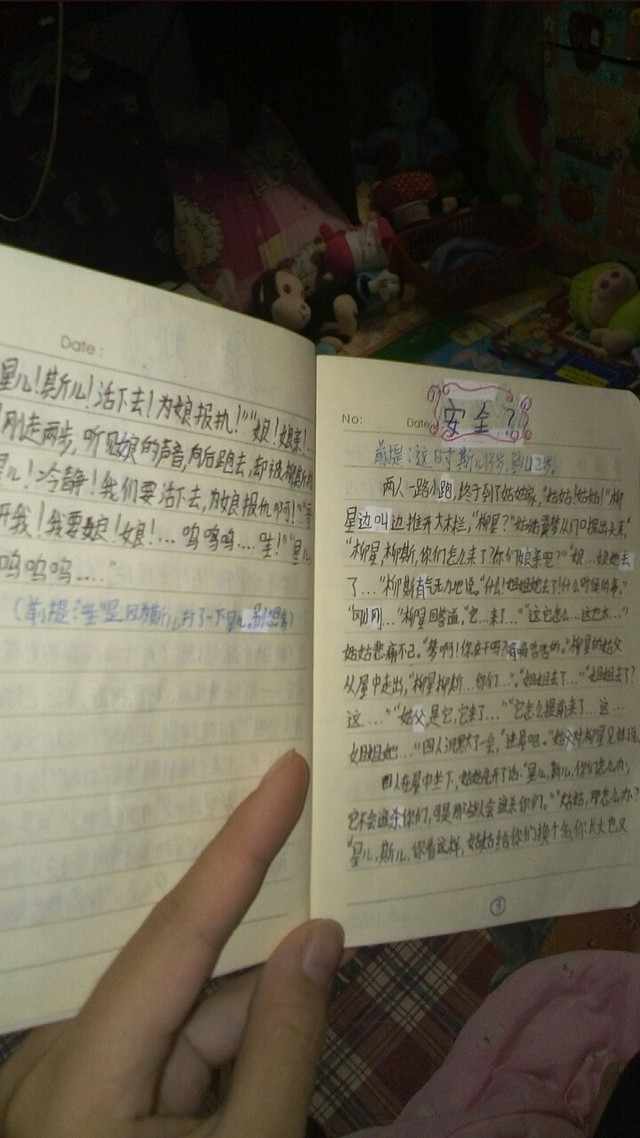 Date:
星儿!斯儿!活下去!为娘报执!"娘!娘亲!...
刚走两步,听见娘的声音,向后跑去,却被柳斯
儿!冷静!我们要活下去,为娘报仇啊!"
开我!我要娘!娘!... 呜呜呜....哇!"星儿
呜呜呜...."
(前提:
No:
Date
安全?
前提:这时斯儿
两人一路小跑,终于到了姑姑家,"姑姑!姑姑!"柳
星边叫边推开大木栏,"柳星?"姑姑从门口探出头来,
"柳星,柳斯,你们怎么来了?你们娘亲呢?""娘...娘她去
了..."柳斯有气无力地说。"什么!姐姐她去了!什么时候的事。"
"刚刚..."柳星回答道,"它...来了...""这它怎么...这也太..."
姑姑悲痛不已。"梦啊!你在干吗?"柳星的姑父
从屋中走出,"柳星柳斯...你们..."。"姐姐去了...""姐姐去了?
这...""姑父是它,它来了...""它怎么提前来了...这...
姐姐她..."四人沉默了一会,"进屋吧。"姑父对柳星兄妹说
四人在屋中坐下,姑姑先开了话:"星儿,斯儿,你们怎么办,
它不会追杀你们,可是那些人会追杀你们。""姑姑,那怎么办?"
"星儿,斯儿,你看这样,姑姑给你们换个名,你丈夫也又
3